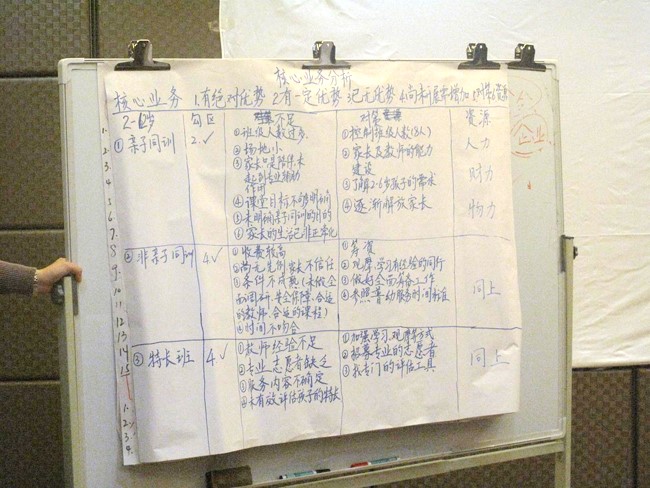 核心业务分析
核心业务 1.有绝对优势 2.有一定优势 3.已无优势 4.尚未开展需增加
2-6岁
勾区
不足
对策
资源
①亲子同训
2.✓
①班级人数过多
②场地小
③家长只是陪伴,未
起到专业辅助
作用
④课堂目标不够明确
⑤未明确亲子同训的目的
⑥家长的生活已非正常化
①控制班级人数(8人)
②家长及教师的能力
建设
③了解2-6岁孩子的需求
④逐渐解放家长
人力
财力
物力
②非亲子同训
4✓
①收费较高
②尚无先例,家长不信任
③条件不成熟(未做全
面调研,安全保障,合适
的教师,合适的课程)
④时间不吻合
①筹资
②观摩,学习有经验的同行
③做好全面筹备工作
④参照普幼服务时间标准
同上
③特长班
4✓
①教师经验不足
②专业志愿者缺乏
③服务内容不确定
④未有效评估孩子的特长
①加强学习,观摩等方式
②招募专业的志愿者
③找专门的评估工具
同上
企业
1.
2.
3.
4.
5
6
7.
8
9.
10
11
12
13
14
15
1.
2.
3.
4.